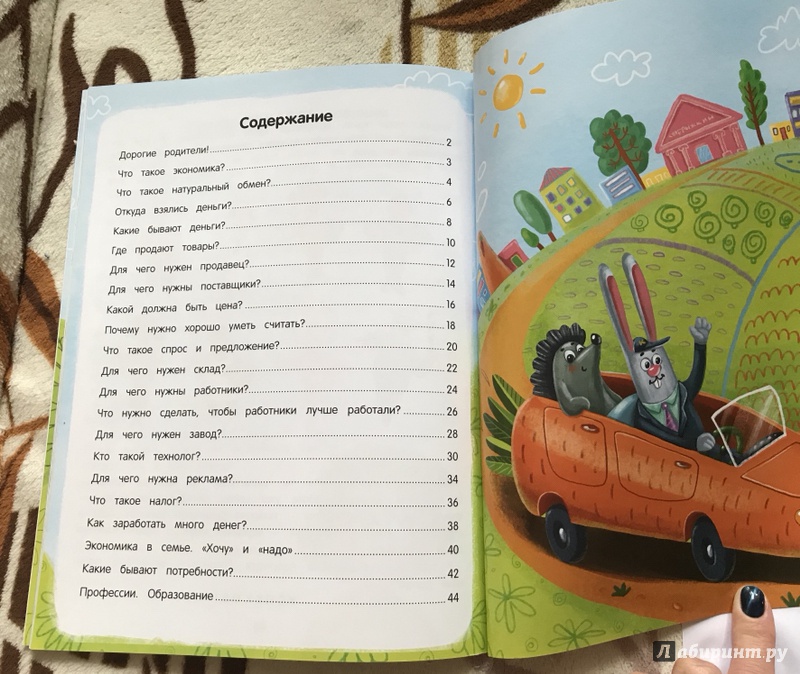 Содержание
Дорогие родители! 2
Что такое экономика? 3
Что такое натуральный обмен? 4
Откуда взялись деньги? 6
Какие бывают деньги? 8
Где продают товары? 10
Для чего нужен продавец? 12
Для чего нужны поставщики? 14
Какой должна быть цена? 16
Почему нужно хорошо уметь считать? 18
Что такое спрос и предложение? 20
Для чего нужен склад? 22
Для чего нужны работники? 24
Что нужно сделать, чтобы работники лучше работали? 26
Для чего нужен завод? 28
Кто такой технолог? 30
Для чего нужна реклама? 34
Что такое налог? 36
Как заработать много денег? 38
Экономика в семье. «Хочу» и «надо» 40
Какие бывают потребности? 42
Профессии. Образование 44
Лабиринт.ру